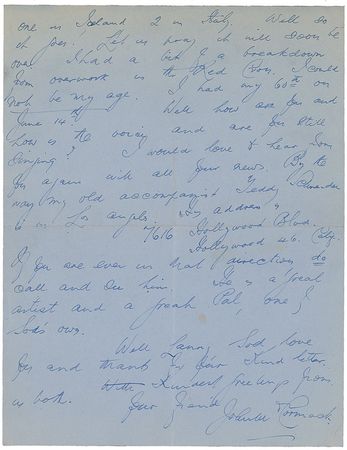 one in Iceland 2 in Italy. Well so
it goes. Let us pray it will soon be
over. I had a bit of a breakdown
from overwork in the Red Cross. It could
not be my age. I had my 60th on
June 14th Well how are you and
how is the voice, and are you still
singing? I would love to hear from
you again with all your news. By the
way my old accompanist Teddy Schneider
is in Los Angeles. His address is
7616 Hollywood Blvd.
Hollywood 46. Calif.
If you are ever in that direction do
call and see him. He is a great
artist and a great Pal, one of
God's own.
Well Larry, God love
you and thanks for your kind letter.
With Kindest greetings from
us both. Your friend
John McCormack